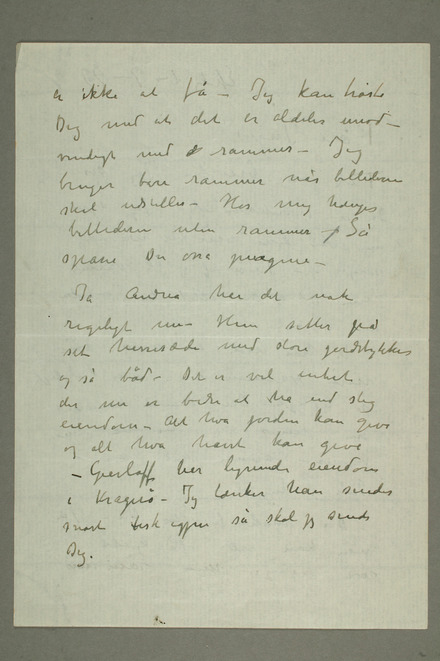 er ikke at få – Jeg kan trøste
Dig med at det er aldeles unød–
vendigt med rammer – Jeg
bruger bare rammer når billederne
skal udstilles – Hos mig hænges
billederne uden rammer – Så
sparer Du også pengene –
Ja Andrea har det nok
rigeligt nu – Hun sitter på
sit herresæde med store jordstykker
og så båd – Det er vel enhver
der nu er bedre at ha end slig
eiendom – Alt hva jorden kan give
og alt hva havet kan give
– Gierløff har lignende eiendom
i Kragerø – Jeg tænker han sender
snart fisk igjen så skal jeg sende
Dig.